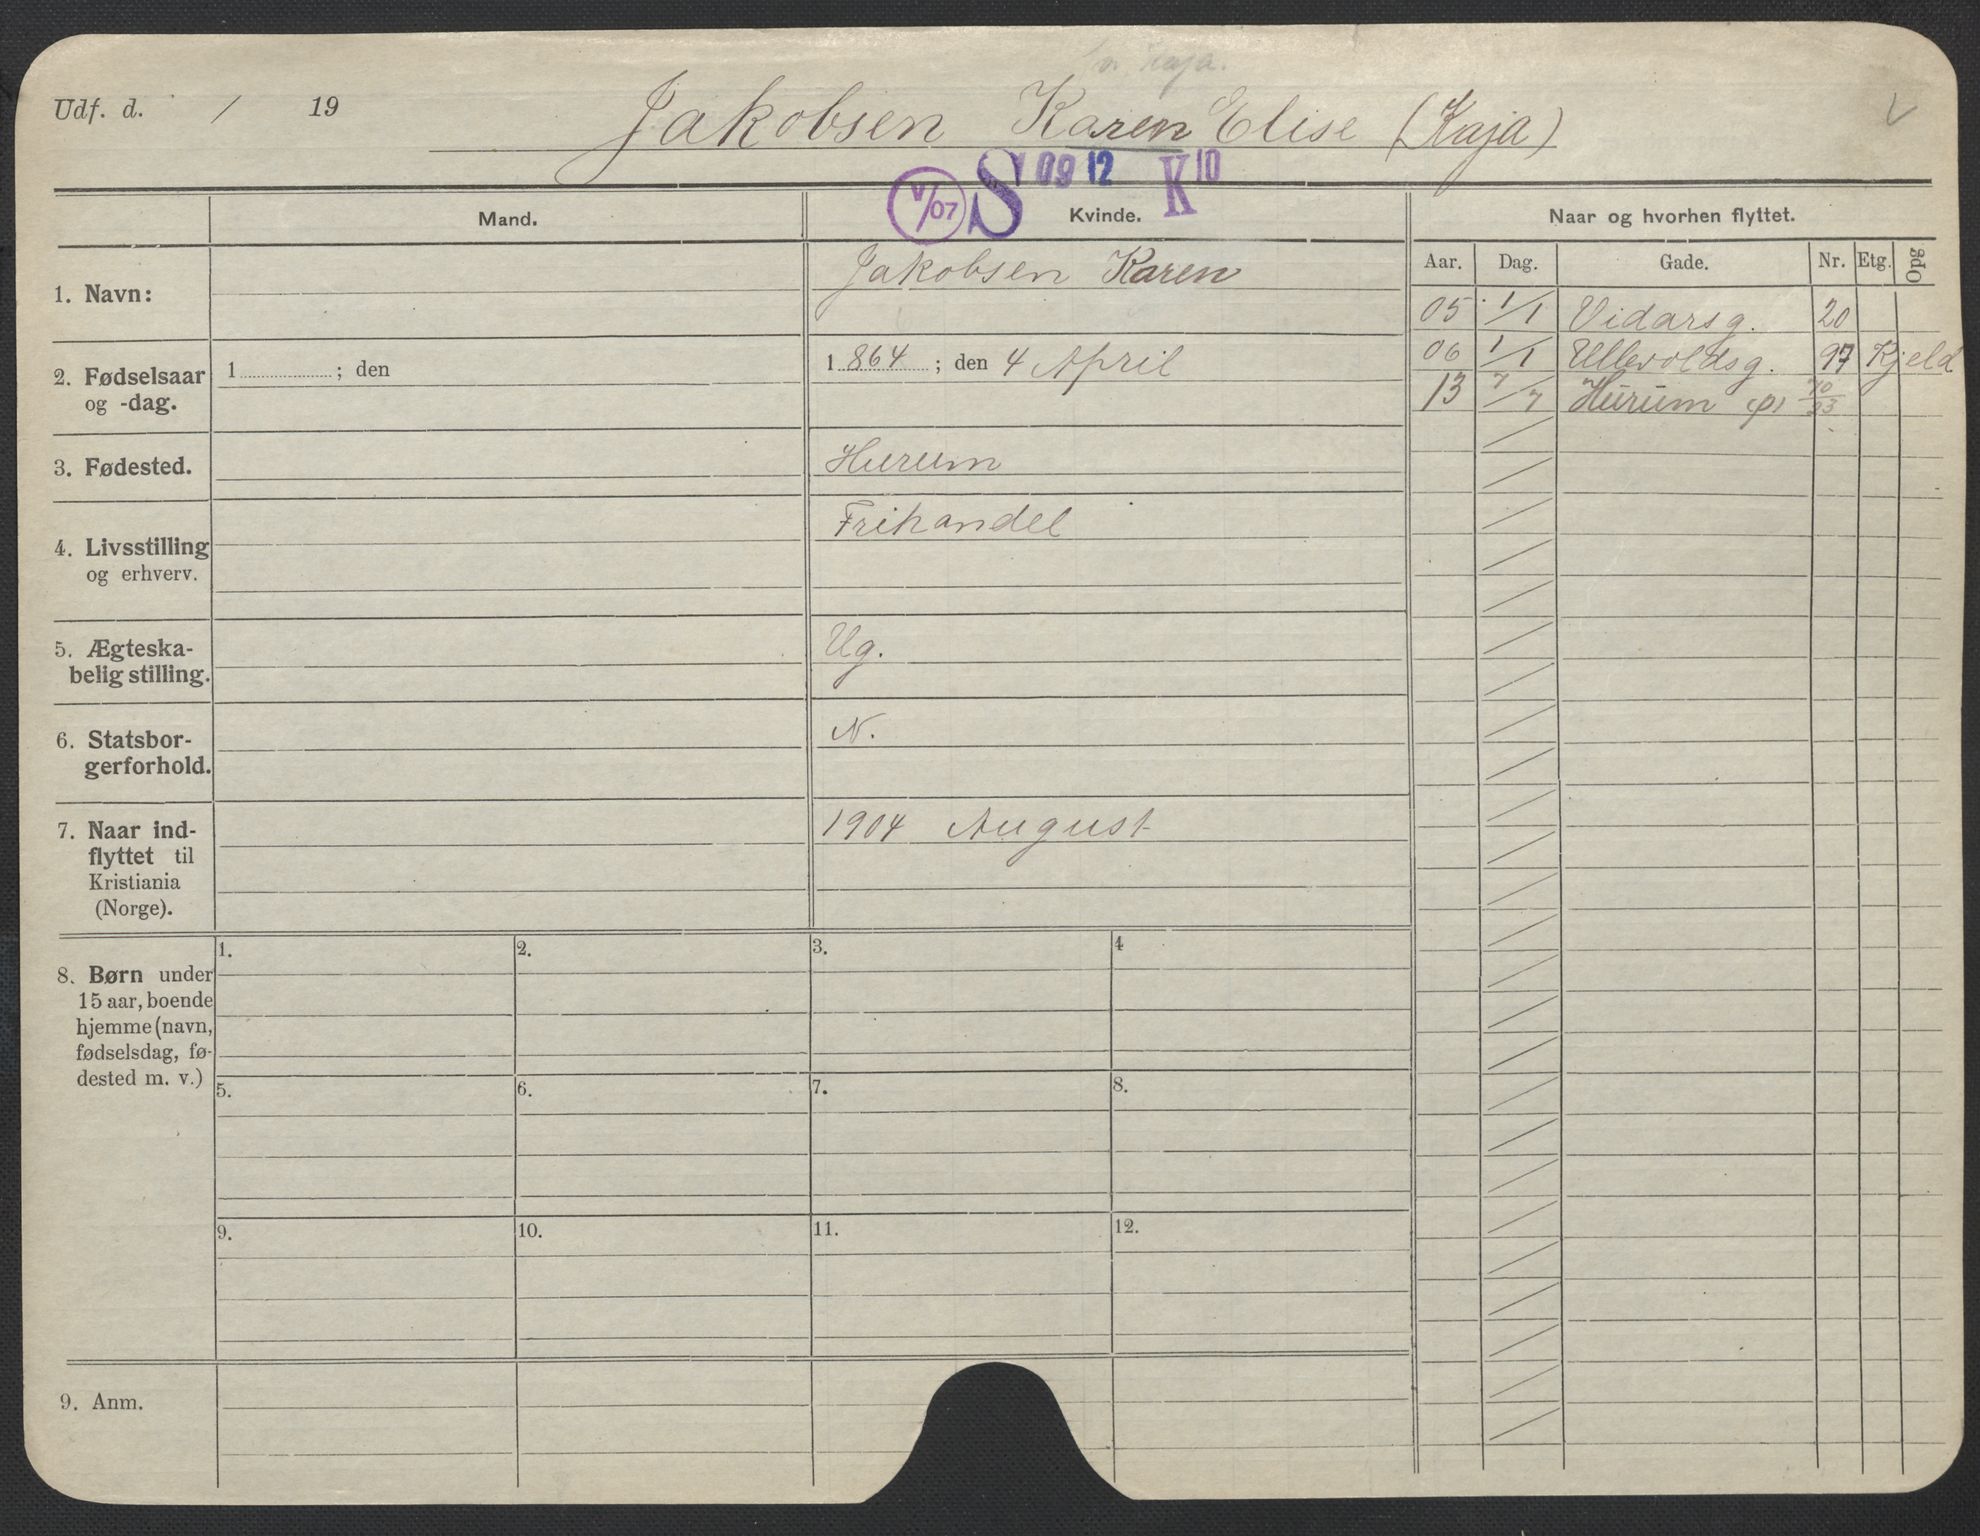 Kaja.
Udf. d. / 19
Jakobsen Karen Elise (Kaja)
V/07 S 09 12 K 10
Mand.
Kvinde.
Naar og hvorhen flyttet.
Aar. Dag. Gade. Nr. Etg. Opg
1. Navn:
Jakobsen Karen
05 1/1 Vidarsg. 20
06 1/1 Ullevoldsg. 97 Kjeld
13 7/7 Hurum (p)
2. Fødselsaar
og -dag.
1 ; den
1 864 ; den 4 April
3. Fødested.
Hurum
4. Livsstilling
og erhverv.
Frihandel
5. Ægteska-
belig stilling.
Ug.
6. Statsbor-
gerforhold.
N.
7. Naar ind-
flyttet til
Kristiania
(Norge).
1904 August
8. Børn under
15 aar, boende
hjemme (navn,
fødselsdag, fø-
dested m. v.)
1. 2. 3. 4
5. 6. 7. 8.
9. 10. 11. 12.
9. Anm.